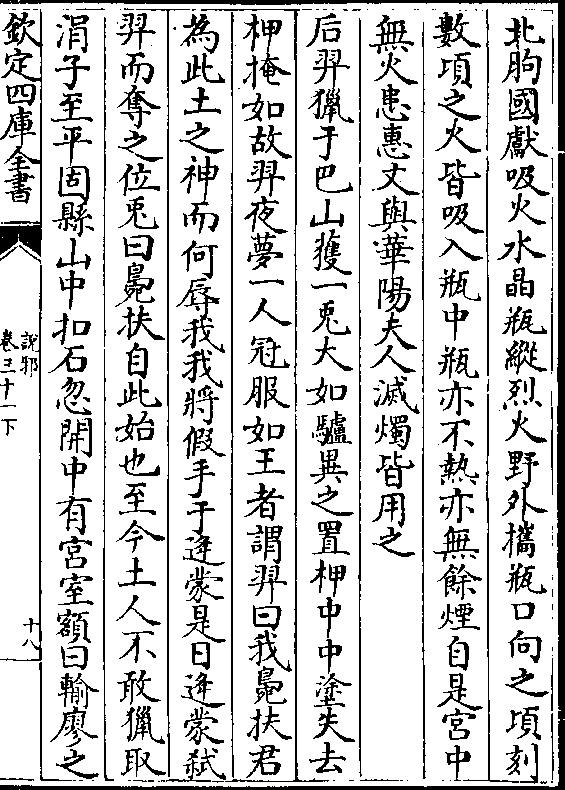 北朐國獻吸火水晶瓶縱烈火野外攜瓶口向之頃刻
數頃之火皆吸入瓶中瓶亦不熱亦無餘煙自是宮中
無火患惠丈與華陽夫人滅燭皆用之
后羿獵于巴山獲一兎大如驢異之置柙中中塗失去
柙掩如故羿夜夢一人冠服如王者謂羿曰我鵷扶君
為此土之神而何辱我我將假手于逢蒙是日逢蒙弑
羿而奪之位兎曰鵷扶自此始也至今土人不敢獵取
涓子至平固縣山中扣石忽開中有宮室額曰輸廖之
欽定四庫全書
說郛
卷三十一下
十八